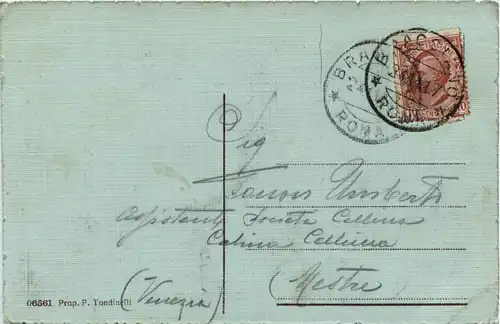 BRACCIANO
ROMA
Sig
Umberto
Assistente Società Cellina
Calina Cellina
Mestre
(Venezia)
06561 Prop. P. Tondinelli